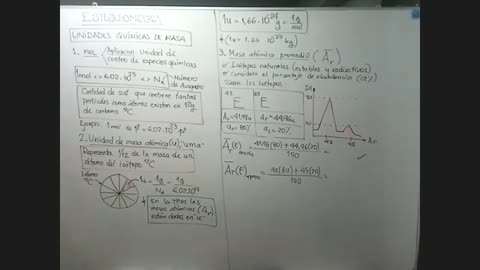 ESTEQUIOMETRÍA
UNIDADES QUÍMICAS DE MASA
1. mol / Aplicación: Unidad de
conteo de especies químicas
1 mol <> 6.02.10²³ <> N_A } Número de Avogadro
Cantidad de sust. que contiene tantas
partículas como átomos existen en 12g
de carbono ¹²C
Ejemplo: 1 mol de
2. Unidad de masa atómica (u), "uma"
Representa 1/12 de la masa de un
átomo del isótopo ¹²C
1 átomo
¹²C
1u = 1g/N_A = 1g/6.02.10²³
En la TPM las
masas atómicas (Ar)
están dadas en "u"
1u = 1,66.10⁻²⁴ g = 1g/mol
(1u = 1,66.10⁻²⁷ kg)
3. Masa atómica promedio (Ār)
Isótopos naturales (estables y radiactivos)
Considera el porcentaje de abundancia (a%)
Sean los isótopos
42 E
45 E
a₁ = 80%
a₂ = 20%
80
20
42 45
Ar
Ār(E) exacta =
100
Ār(E) aprox = 42(80) + 45(20) / 100 =